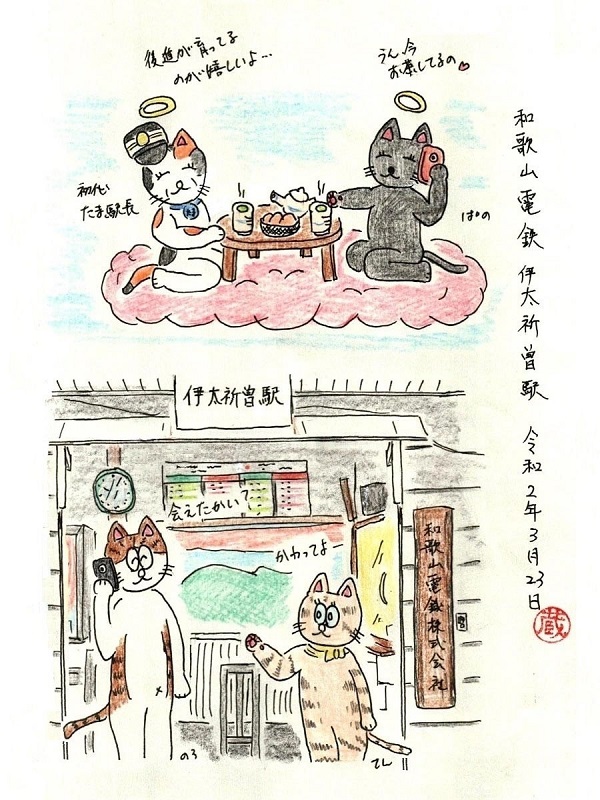 後進が育ってる
のが嬉しいよ…
うん、今
お茶してるの
初代
たま駅長
ぱの
和歌山電鉄 伊太祈曽駅 令和2年3月23日
蔵
伊太祈曽駅
会えたかい?
かわってよー
和歌山電鐵株式会社
のろ
てん